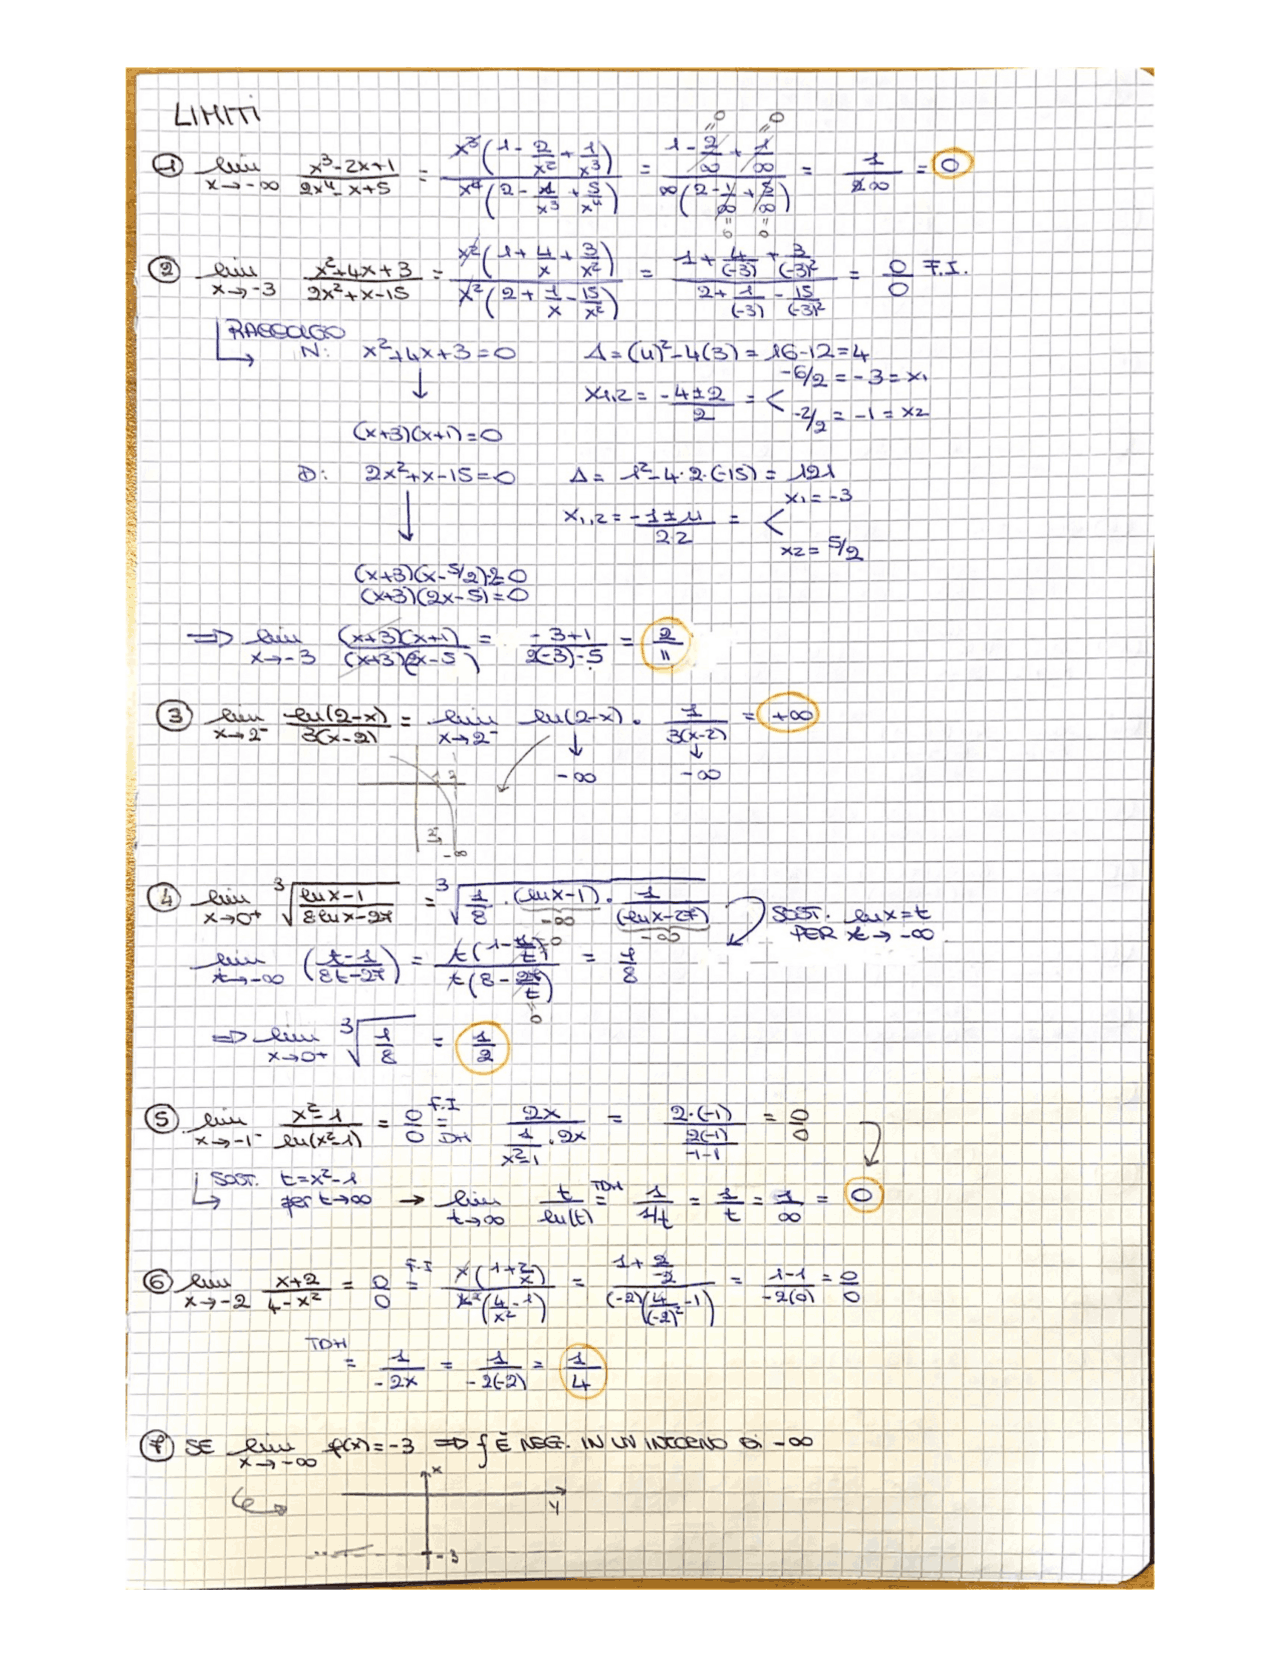 LIMITI
① lim x→-∞ (x³-2x+1)/(2x⁴-x+5) = x³(1-2/x²+1/x³)/x⁴(2-1/x³+5/x⁴) = (1-2/∞+1/∞)/∞(2-1/∞+5/∞) = 1/∞ = 0
② lim x→-3 (x²+4x+3)/(2x²+x-15) = x²(1+4/x+3/x²)/x²(2+1/x-15/x²) = (1+4/(-3)+3/(-3)²)/(2+1/(-3)-15/(-3)²) = 0/0 F.I.
RACCOLGO
N: x²+4x+3=0 Δ=(4)²-4(3)=16-12=4
↓ x1,2 = (-4±2)/2 = < -6/2=-3=x1
-2/2=-1=x2
(x+3)(x+1)=0
D: 2x²+x-15=0 Δ= 1²-4·2·(-15)= 121
↓ x1,2 = (-1±11)/2·2 = < x1=-3
x2= 5/2
(x+3)(x-5/2)·2=0
(x+3)(2x-5)=0
⇒ lim x→-3 (x+3)(x+1)/(x+3)(2x-5) = (-3+1)/(2(-3)-5) = 2/11
③ lim x→2⁻ ln(2-x)/3(x-2) = lim x→2⁻ ln(2-x) · 1/3(x-2) = +∞
↓ ↓
-∞ -∞
1 2
-∞
④ lim x→0⁺ ³√((lnx-1)/(8lnx-27)) = ³√(1/8 · (lnx-1) · 1/(lnx-27)) SOST. lnx=t
-∞ -∞ PER t→-∞
lim t→-∞ ((t-1)/(8t-27)) = t(1-1/t)/t(8-27/t) = 1/8
⇒ lim x→0⁺ ³√(1/8) = 1/2
⑤ lim x→-1⁻ (x²-1)/ln(x²-1) = 0/0 F.I = DH 2x/(1/(x²-1)·2x) = 2·(-1)/(2(-1)/(-1-1)) = 0/0
SOST. t=x²-1
per t→∞ → lim t→∞ t/ln(t) TDH = 1/(1/t) = 1/t = 1/∞ = 0
⑥ lim x→-2 (x+2)/(4-x²) = 0/0 F.I = x(1+2/x)/x²(4/x²-1) = (1+2/-2)/(-2)(4/(-2)²-1) = (1-1)/-2(0) = 0/0
TDH = 1/-2x = 1/-2(-2) = 1/4
⑦ SE lim x→-∞ f(x)=-3 ⇒ f È NEG. IN UN INTORNO DI -∞
x
y
-3